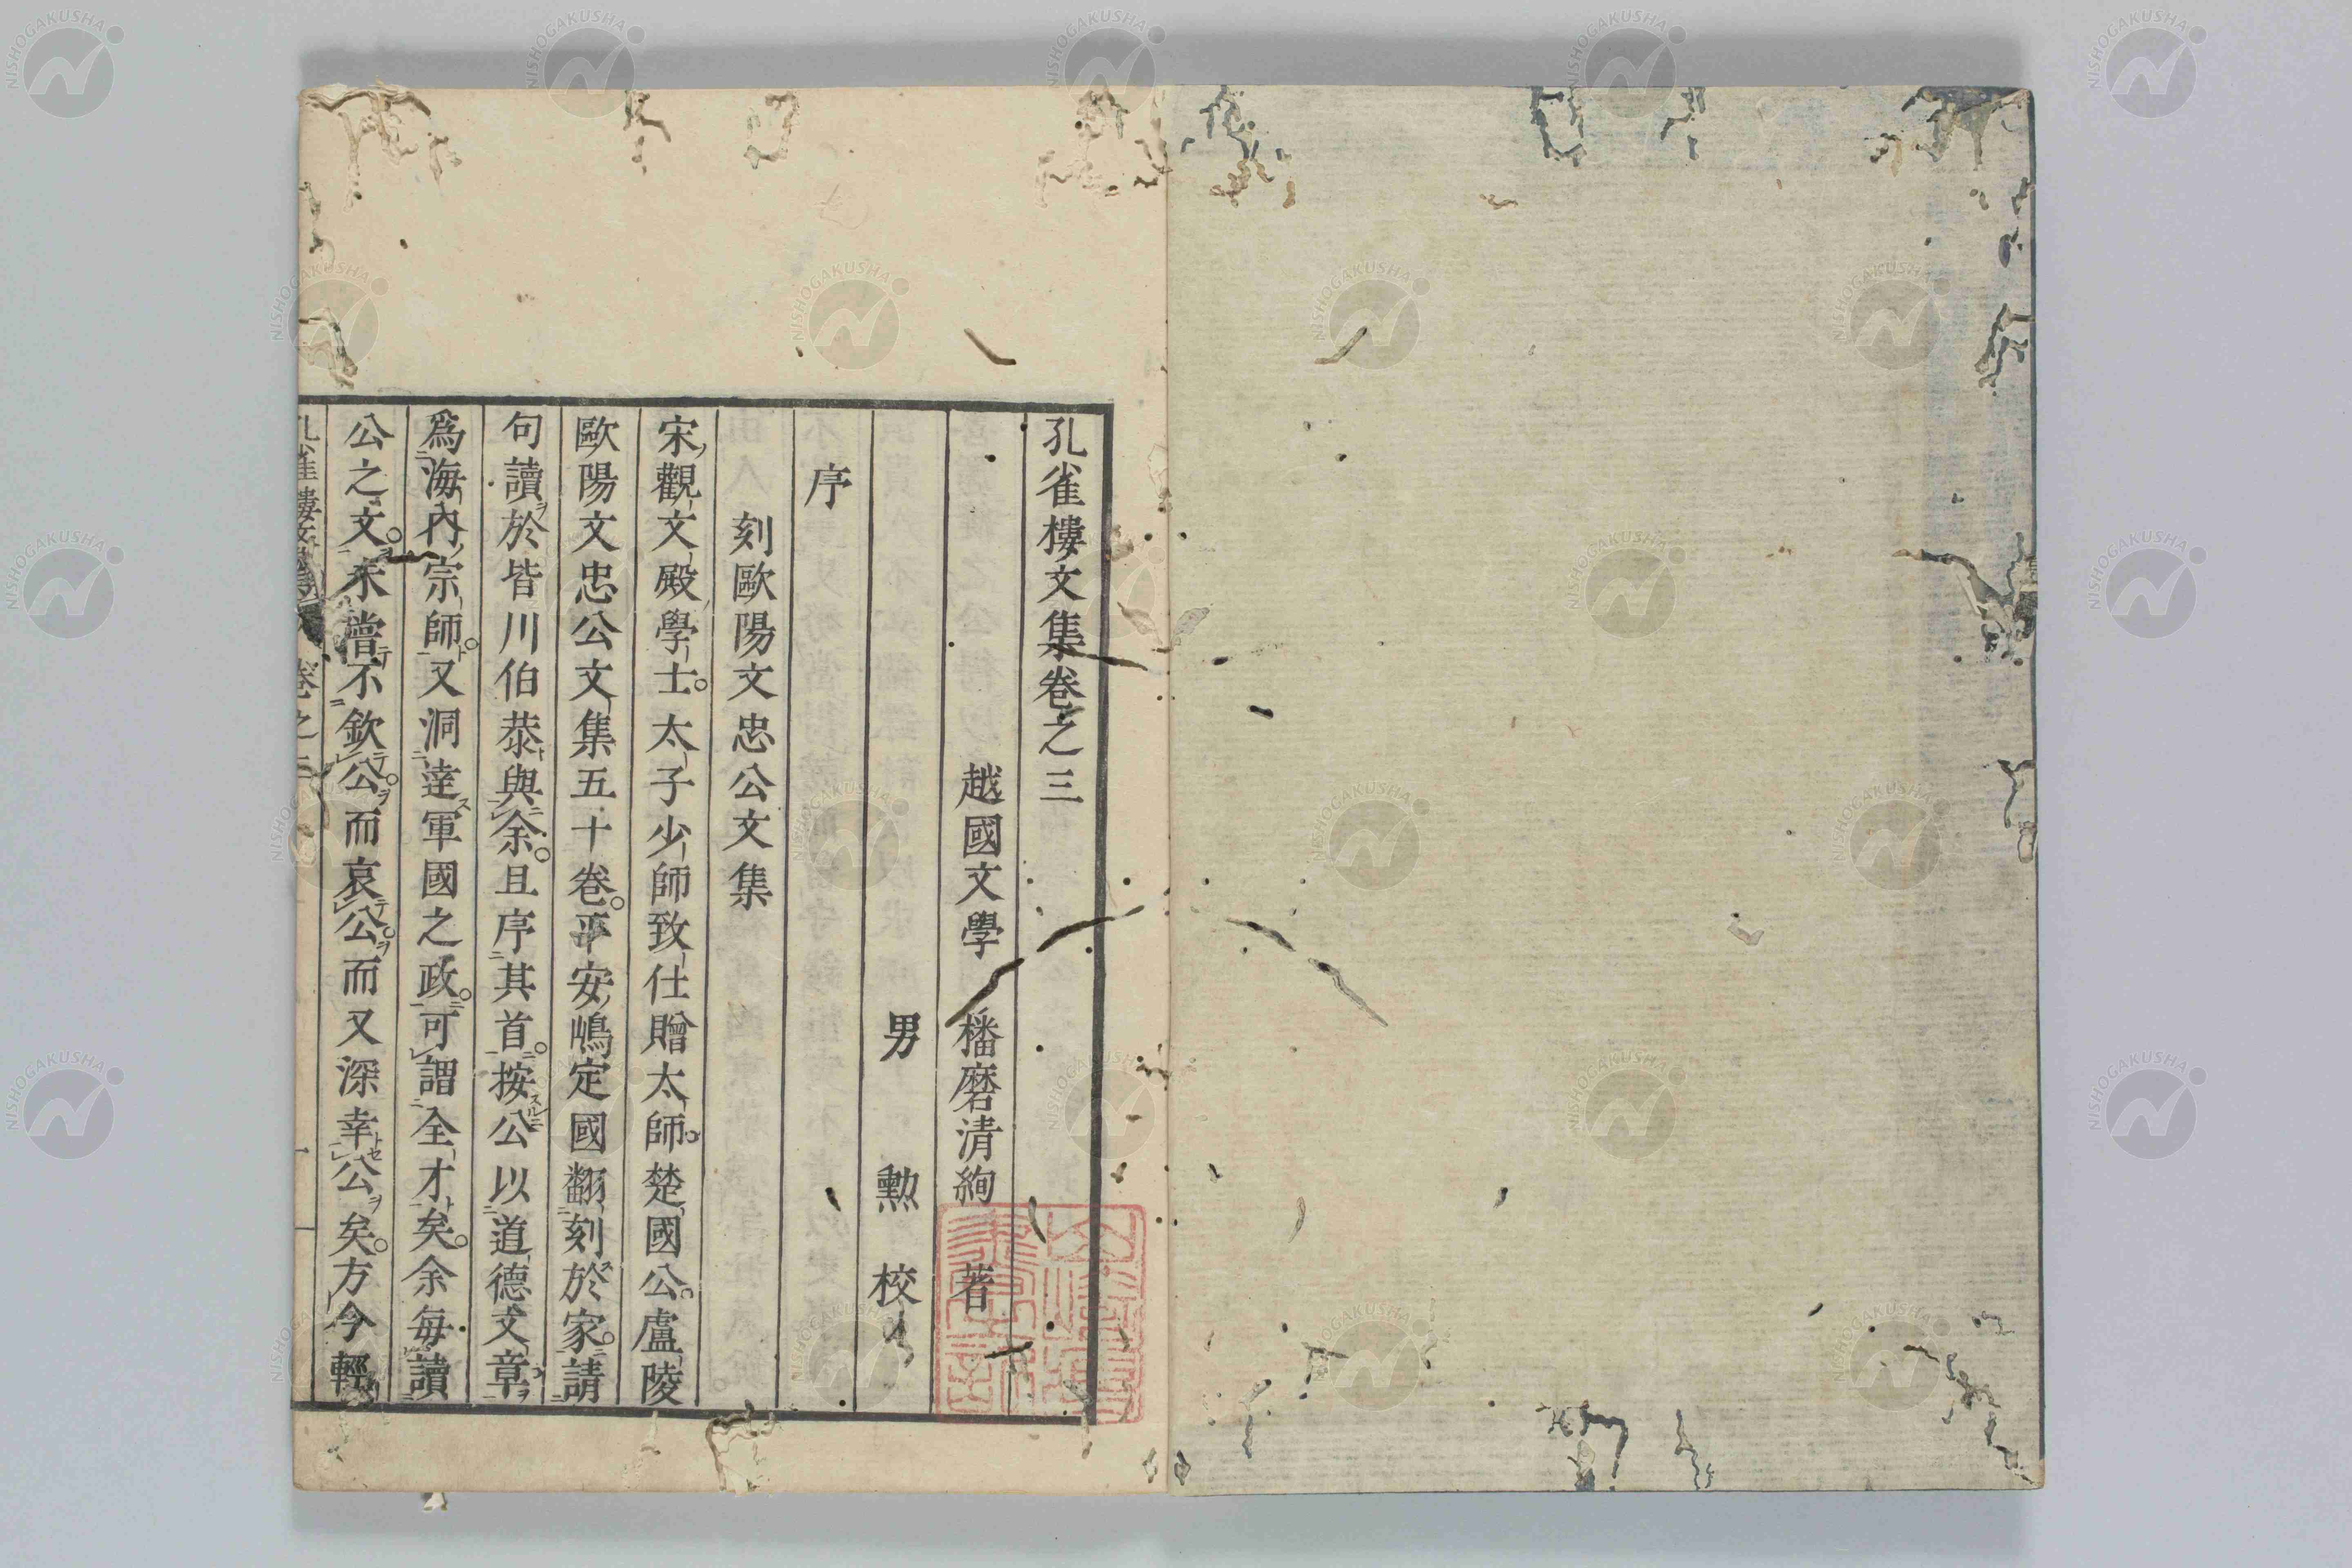 孔雀樓文集卷之三
越國文學　播磨清絢　著
男　勲　校
序
刻歐陽文忠公文集
宋觀文殿學士。太子少師致仕贈太師。楚國公。盧陵
歐陽文忠公文集五十卷。平安嶋定國翻刻於家。請
句讀於皆川伯恭與余。且序其首。按公以道德文章
爲海內宗師。又洞達軍國之政。可謂全才矣。余每讀
公之文。未嘗不欽公。而哀公。而又深幸公矣。方今輕
孔雀樓文集 卷之三 一
NISHOGAKUSHA